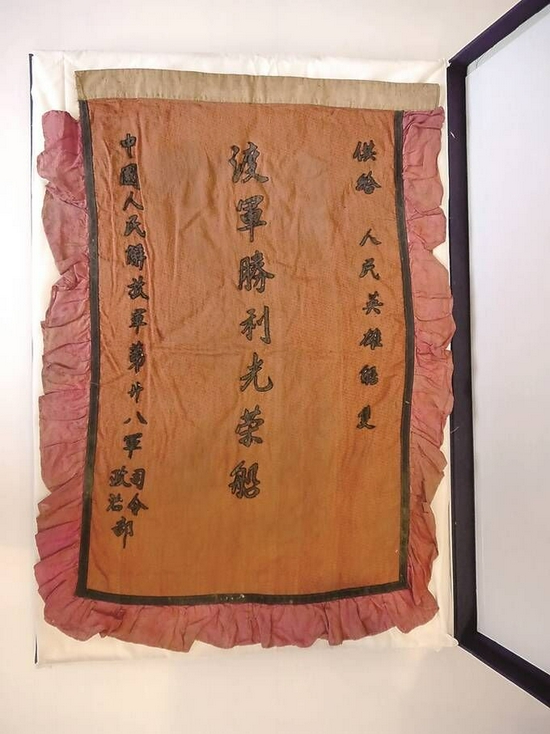 供给 人民英雄
渡軍勝利光荣船
中國人民解放軍第廿八軍司令政治部